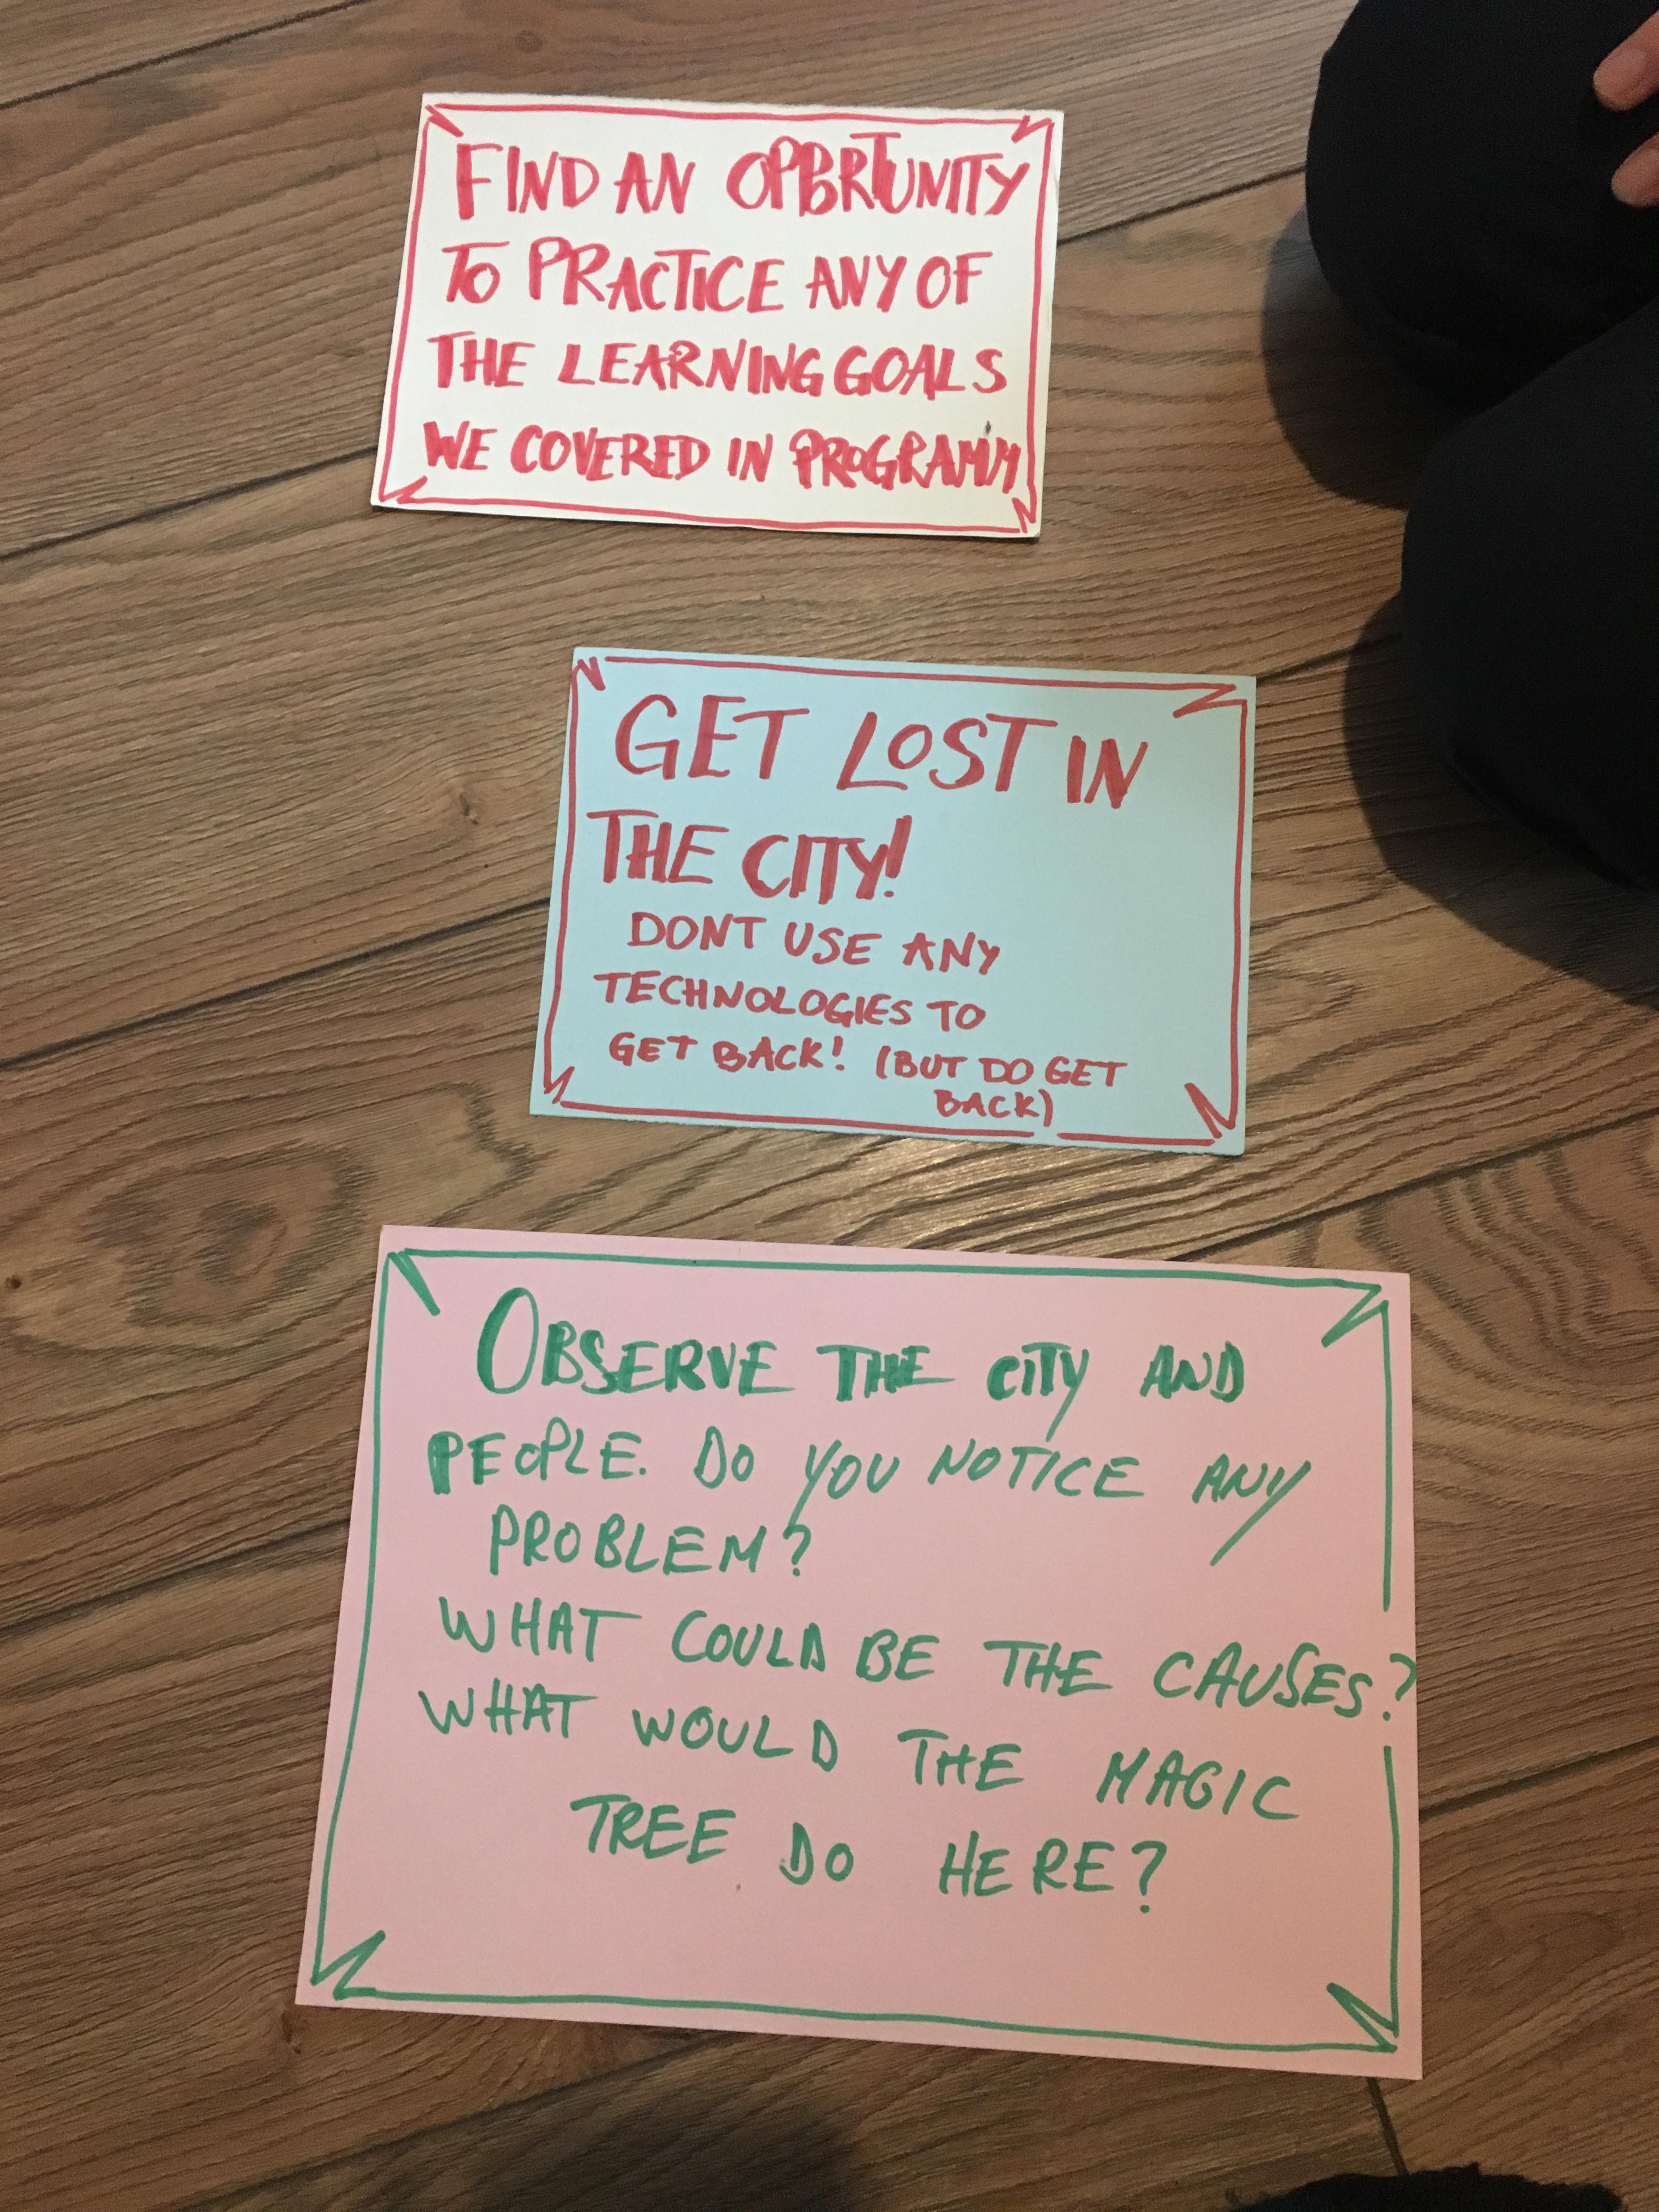 FIND AN OPPORTUNITY
TO PRACTICE ANY OF
THE LEARNING GOALS
WE COVERED IN PROGRAMM
GET LOST IN
THE CITY!
DONT USE ANY
TECHNOLOGIES TO
GET BACK! (BUT DO GET
BACK)
OBSERVE THE CITY AND
PEOPLE. DO YOU NOTICE ANY
PROBLEM?
WHAT COULD BE THE CAUSES?
WHAT WOULD THE MAGIC
TREE DO HERE?